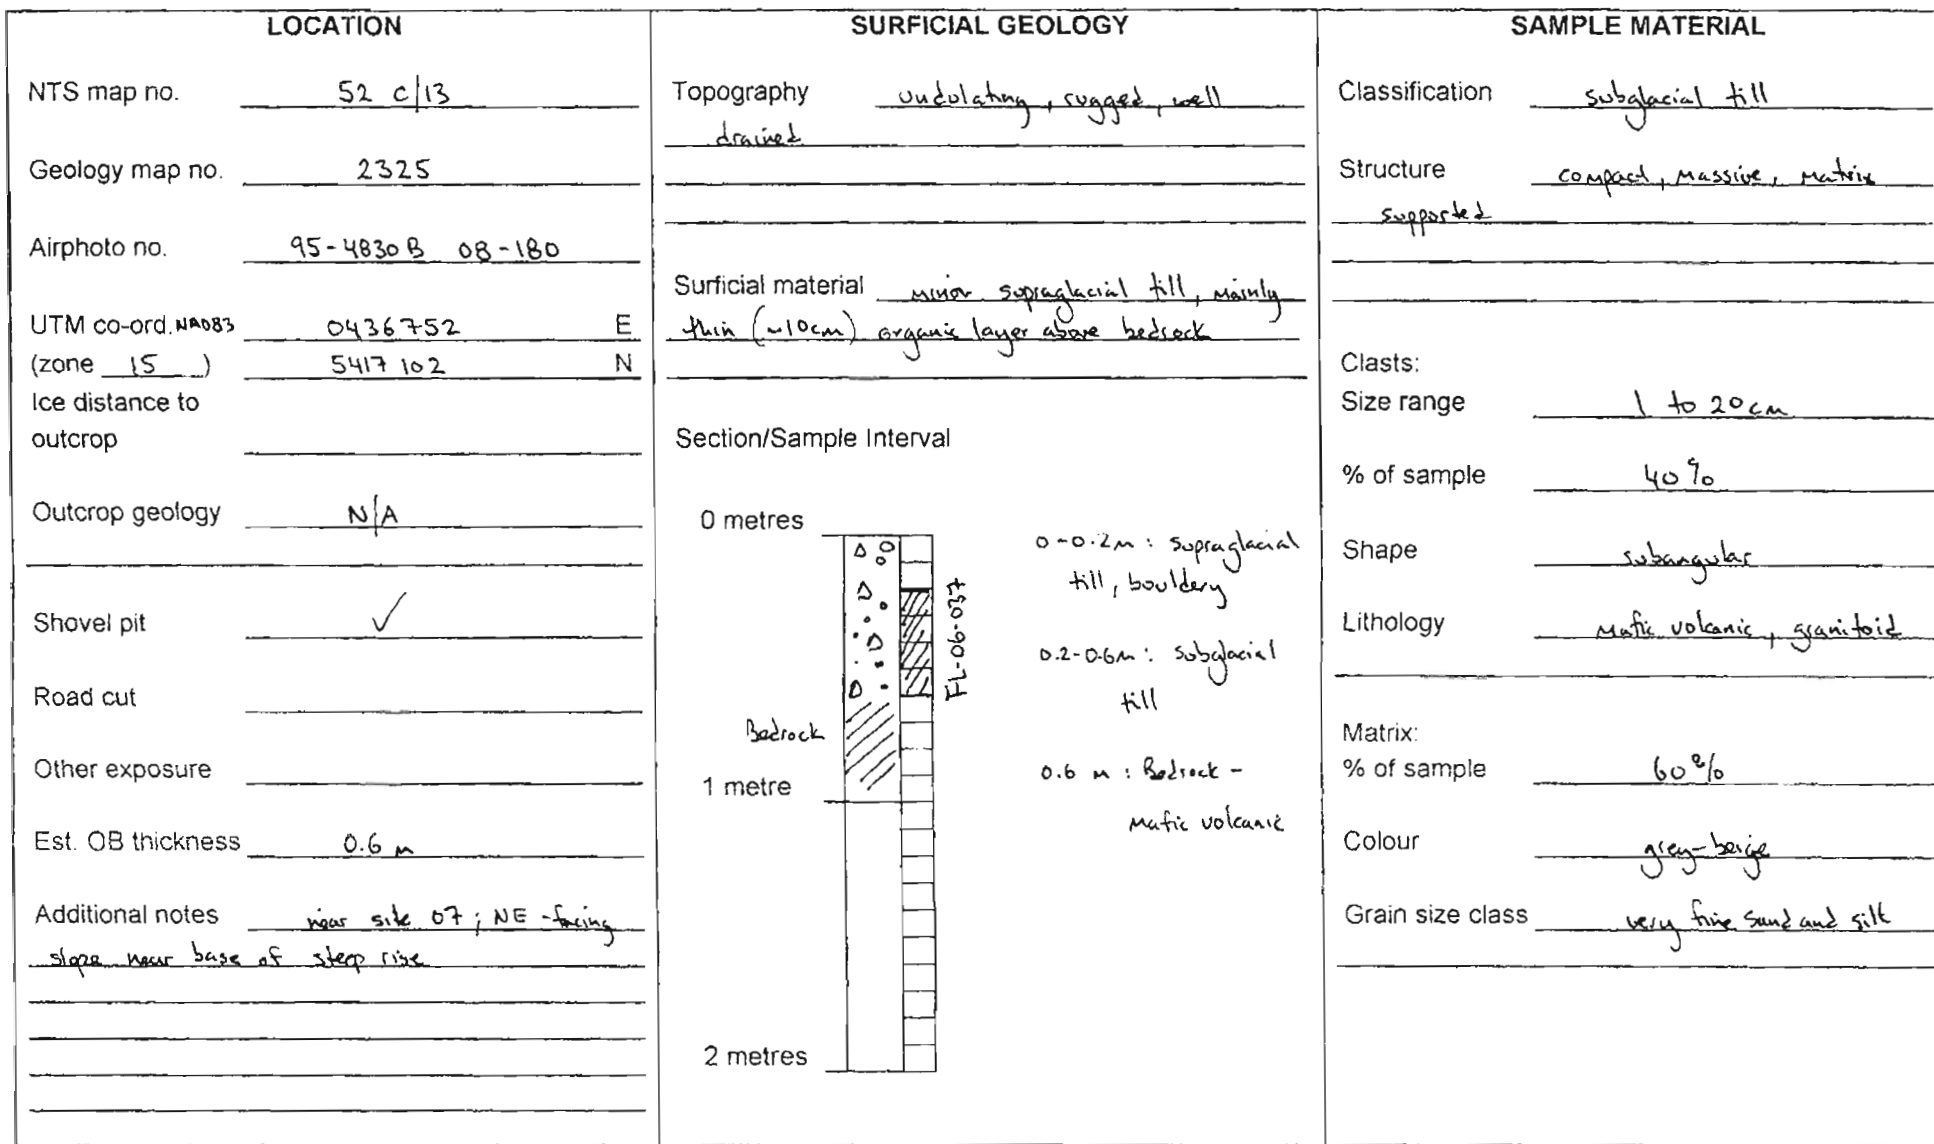 LOCATION
NTS map no. 52 C/13
Geology map no. 2325
Airphoto no. 95-4830B 08-180
UTM co-ord. NAD83 0436752 E
(zone 15 ) 5417102 N
Ice distance to
outcrop
Outcrop geology N/A
Shovel pit ✓
Road cut
Other exposure
Est. OB thickness 0.6 m
Additional notes near site 07; NE-facing
slope near base of steep rise
SURFICIAL GEOLOGY
Topography undulating, rugged, well
drained
Surficial material minor supraglacial till, mainly
thin (~10cm) organic layer above bedrock
Section/Sample Interval
0 metres
FL-06-037
Bedrock
1 metre
2 metres
0-0.2m: supraglacial
till, bouldery
0.2-0.6m: subglacial
till
0.6 m: Bedrock -
mafic volcanic
SAMPLE MATERIAL
Classification subglacial till
Structure compact, massive, matrix
supported
Clasts:
Size range 1 to 20cm
% of sample 40%
Shape subangular
Lithology mafic volcanic, granitoid
Matrix:
% of sample 60%
Colour grey-beige
Grain size class very fine sand and silt